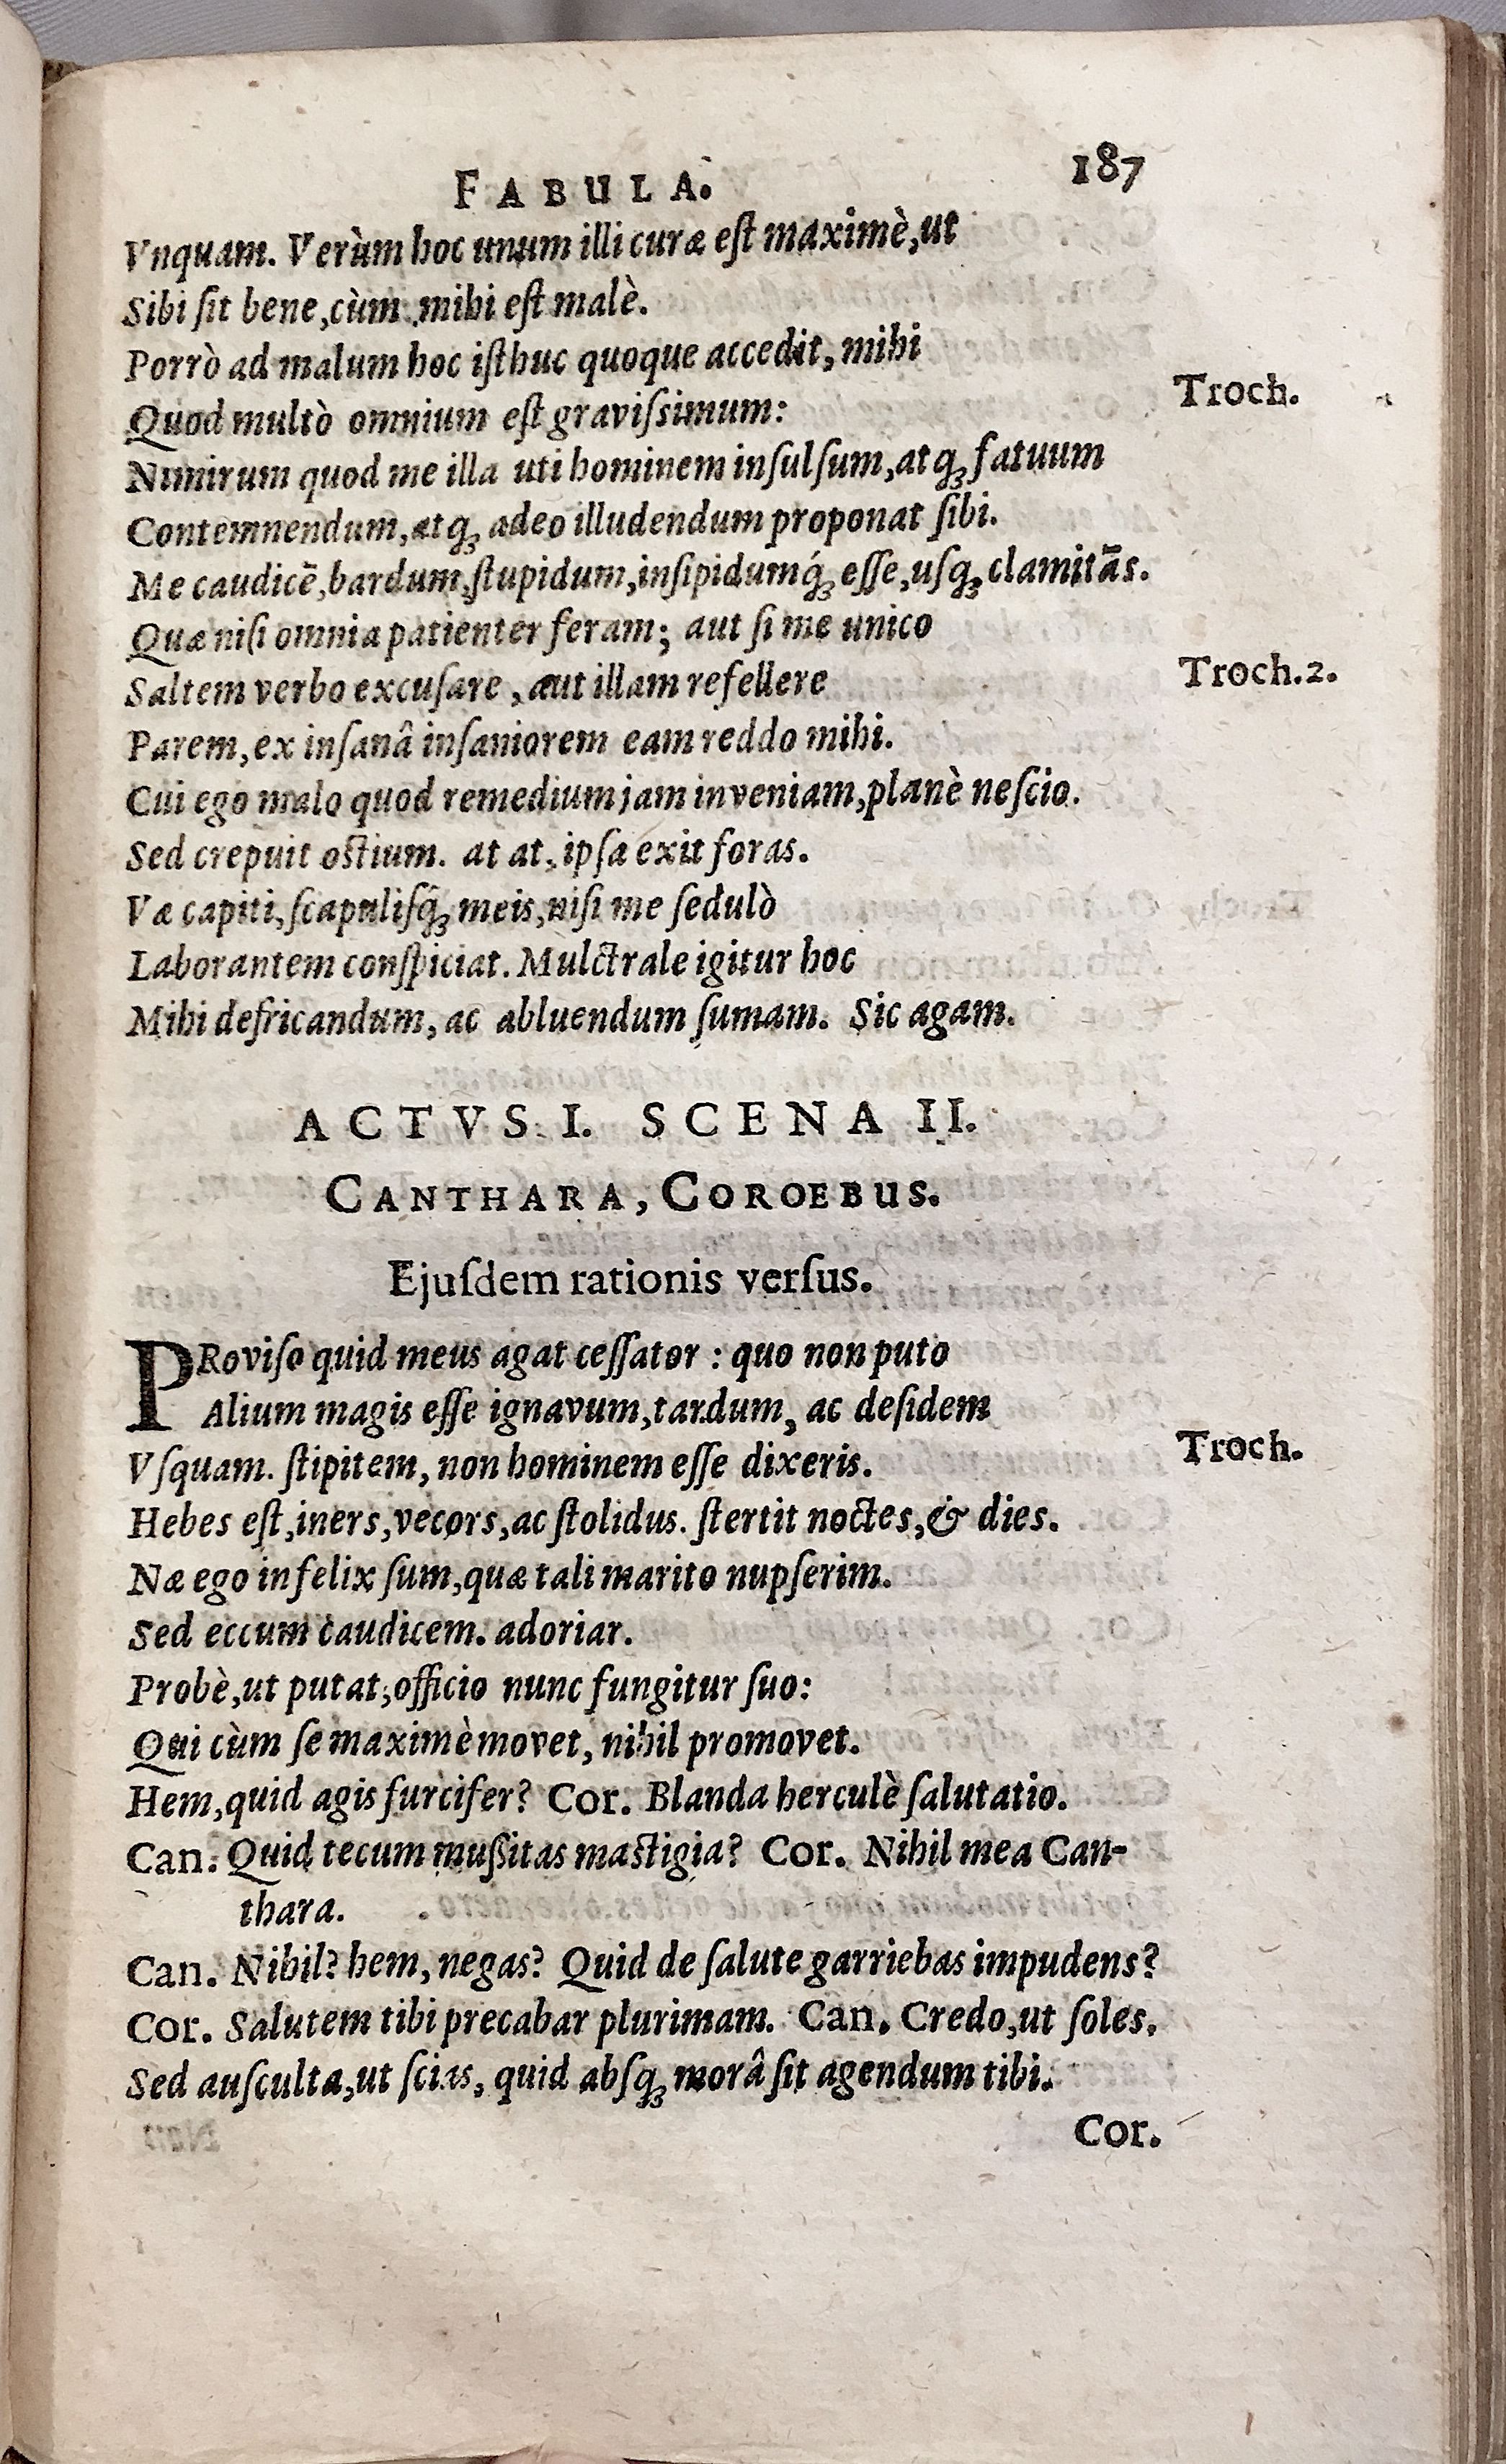 FABULA. 187
Vnquam. Verùm hoc unum illi curæ eſt maximè,ut
Sibi ſit bene,cùm mihi eſt malè.
Porrò ad malum hoc iſthuc quoque accedit, mihi
Troch.
Quod multò omnium eſt graviſsimum:
Nimirum quod me illa uti hominem inſulſum,atq; fatuum
Contemnendum,atq; adeo illudendum proponat ſibi.
Me caudicē,bardum,ſtupidum,inſipidumq́; eſſe,uſq; clamitās.
Quæ niſi omnia patienter feram; aut ſi me unico
Troch.2.
Saltem verbo excuſare, aut illam refellere
Parem,ex inſanâ inſaniorem eam reddo mihi.
Cui ego malo quod remedium jam inveniam,planè neſcio.
Sed crepuit oſtium. at at, ipſa exit foras.
Væ capiti,ſcapuliſq́; meis,niſi me ſedulò
Laborantem conſpiciat. Mulctrale igitur hoc
Mihi defricandum, ac abluendum ſumam. Sic agam.
ACTVS I. SCENA II.
CANTHARA, COROEBUS.
Ejuſdem rationis verſus.
PRoviſo quid meus agat ceſſator : quo non puto
Alium magis eſſe ignavum,tardum, ac deſidem
Troch.
Vſquam. ſtipitem, non hominem eſſe dixeris.
Hebes eſt,iners,vecors,ac ſtolidus. ſtertit noctes,& dies.
Næ ego infelix ſum,quæ tali marito nupſerim.
Sed eccum caudicem. adoriar.
Probè,ut putat,officio nunc fungitur ſuo:
Qui cùm ſe maximè movet, nihil promovet.
Hem,quid agis furcifer? Cor. Blanda herculè ſalutatio.
Can. Quid tecum muſsitas maſtigia? Cor. Nihil mea Can-
thara.
Can. Nihil? hem, negas? Quid de ſalute garriebas impudens?
Cor. Salutem tibi precabar plurimam. Can. Credo,ut ſoles.
Sed auſculta,ut ſcias, quid abſq; morâ ſit agendum tibi.
Cor.